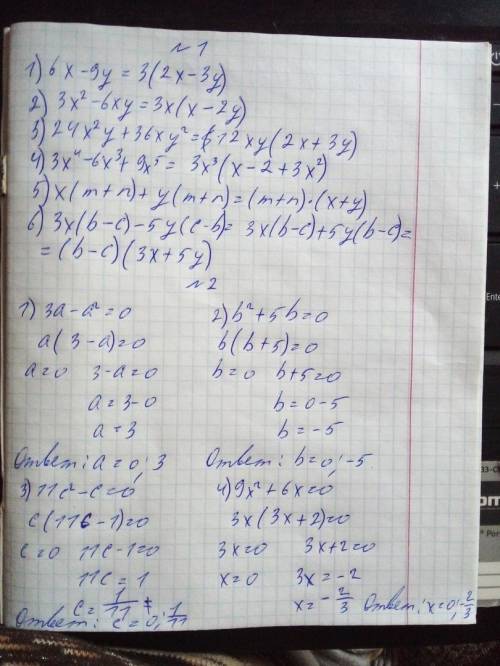 №1
1) 6x-9y = 3(2x-3y)
2) 3x²-6xy=3x(x-2y)
3) 24x²y+36xy²=12xy(2x+3y)
4) 3x⁴-6x³+9x⁵= 3x³(x-2+3x²)
5) x(m+n)+y(m+n)=(m+n)·(x+y)
6) 3x(b-c)-5y(c-b)= 3x(b-c)+5y(b-c)=
=(b-c)(3x+5y)
№2
1) 3a-a²=0
a(3-a)=0
a=0 3-a=0
a=3-0
a=3
Ответ: a=0; 3
2) b²+5b=0
b(b+5)=0
b=0 b+5=0
b=0-5
b=-5
Ответ: b=0; -5
3) 11c²-c=0
c(11c-1)=0
c=0 11c-1=0
11c=1
c=1/11
Ответ: c=0; 1/11
4) 9x²+6x=0
3x(3x+2)=0
3x=0 3x+2=0
x=0 3x=-2
x=-2/3
Ответ: x=0; -2/3
Enter